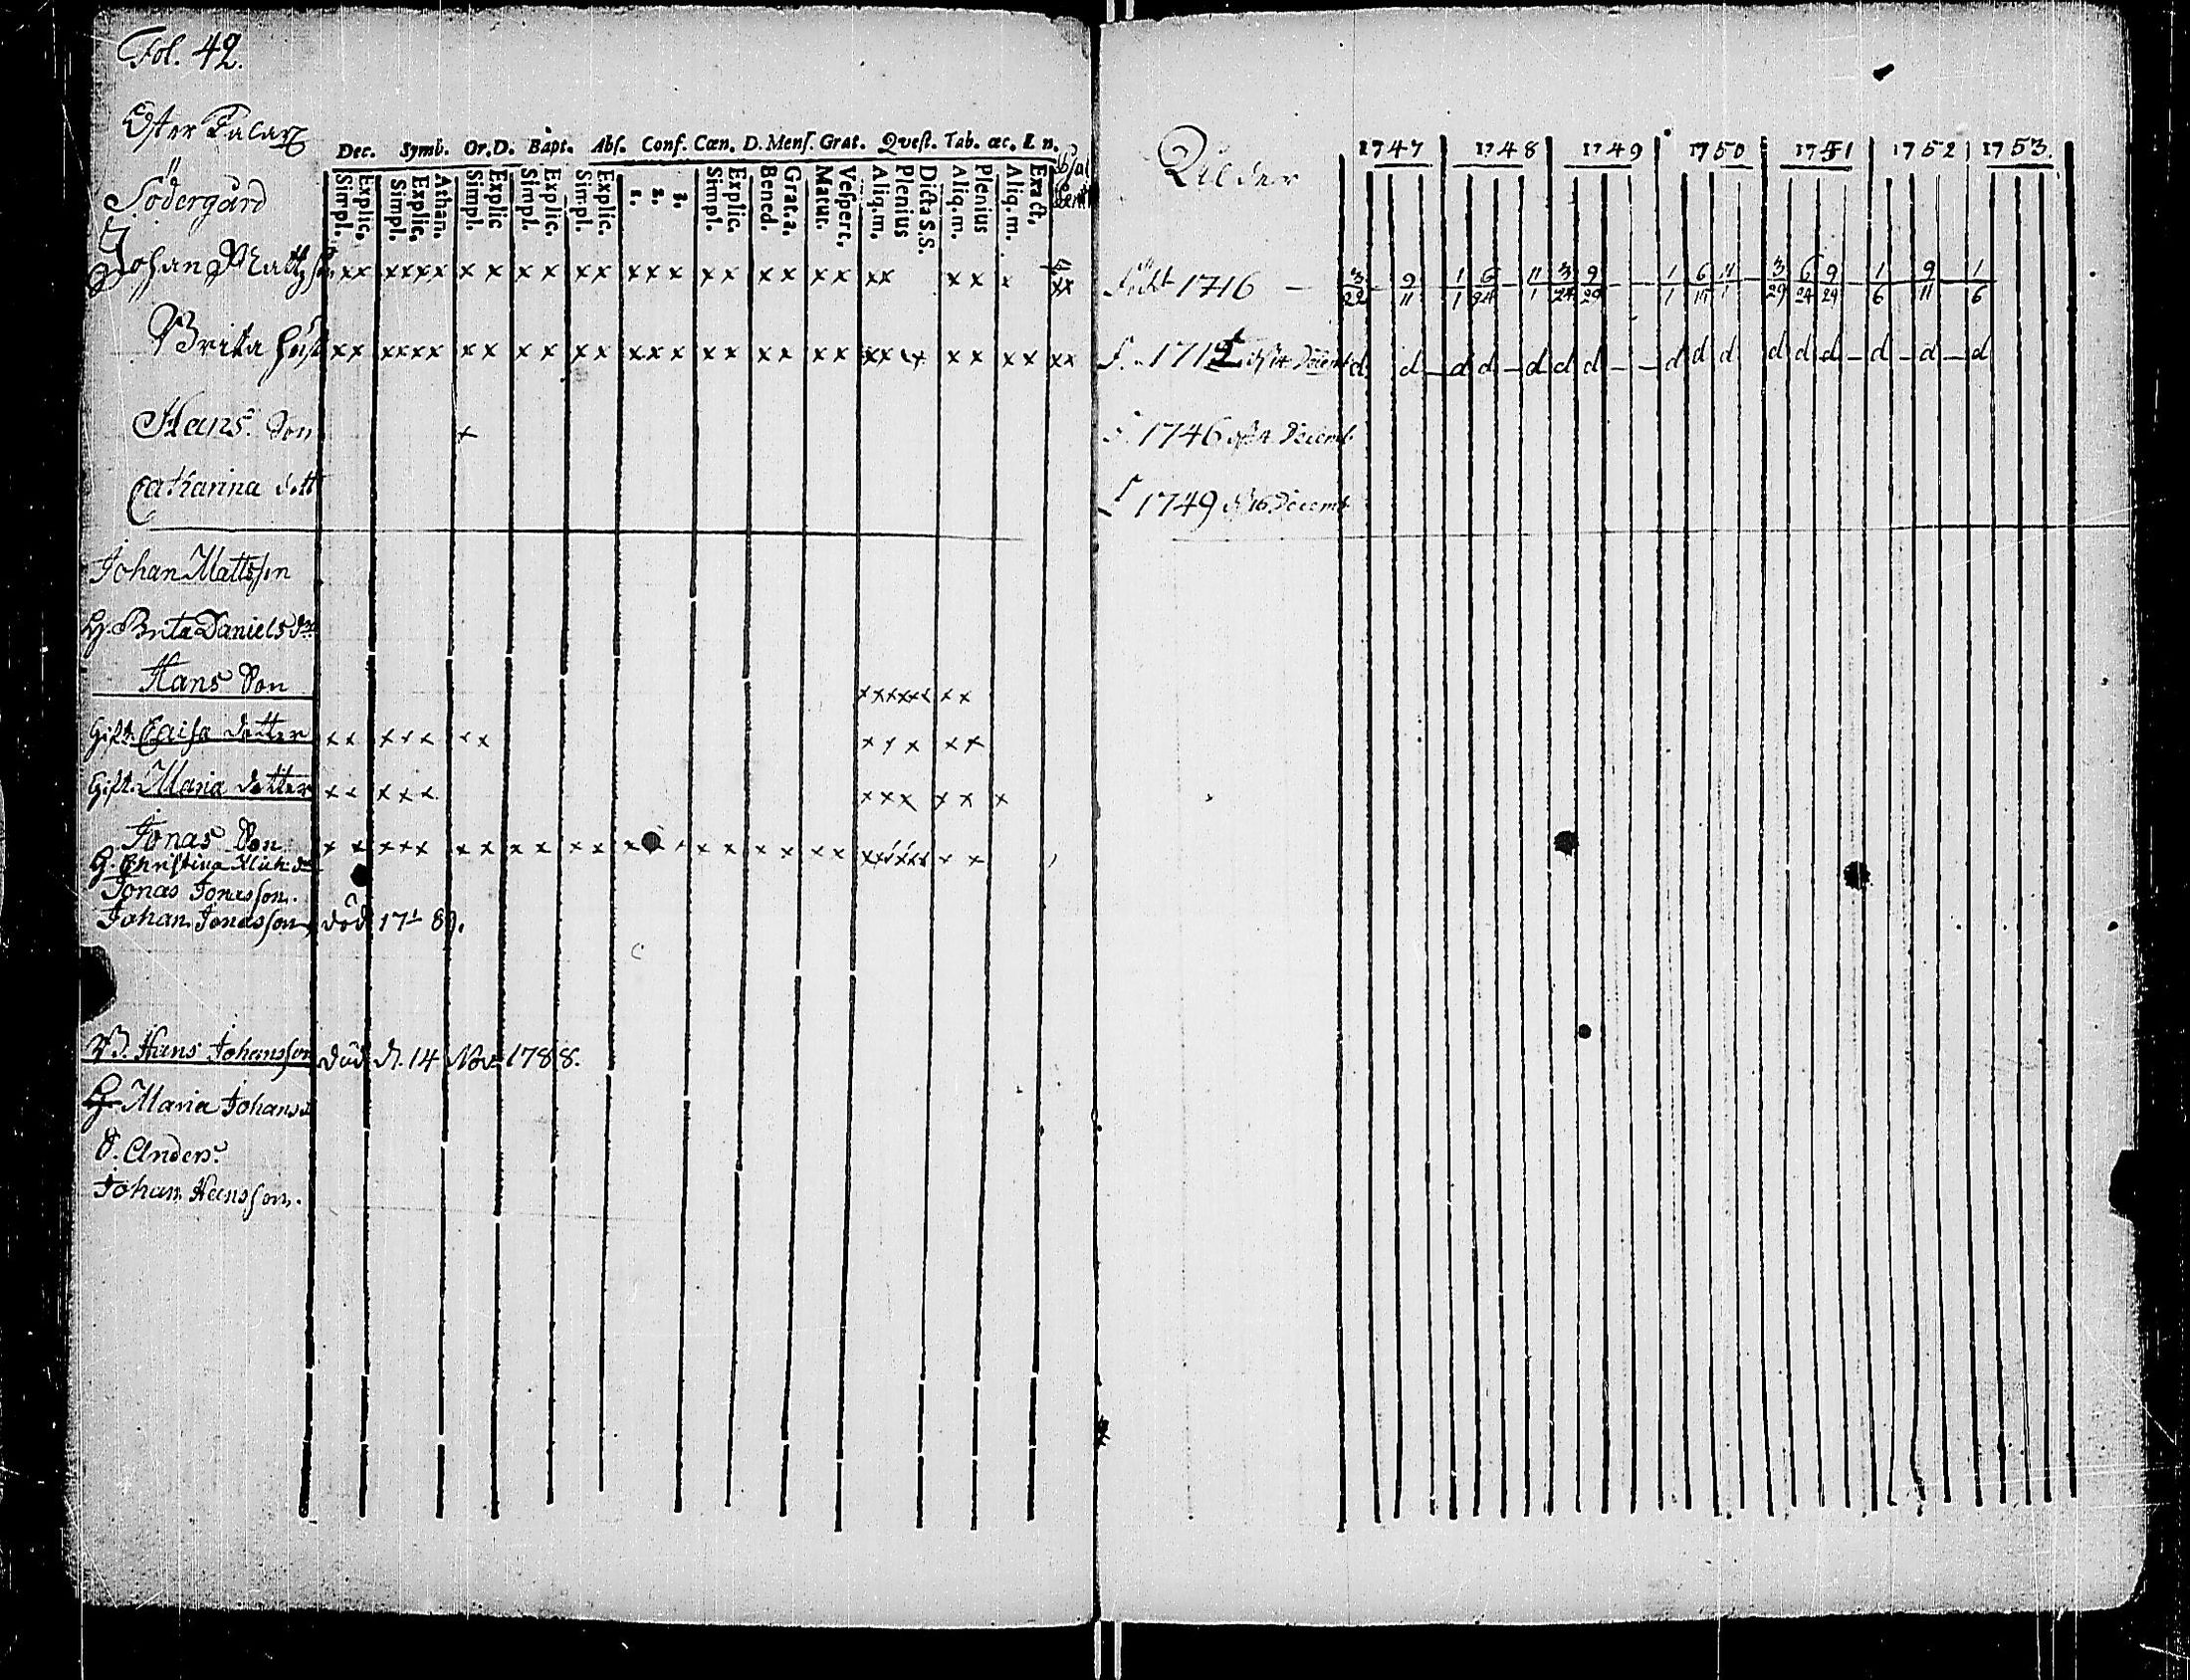 Fol. 42.
Öster
Södergård
Dec. Symb. Or.D. Bapt. Abs. Conf. Cœn. D. Mens. Grat. Qvest. Tab. œc. E n.
Simpl. Explic. Simpl. Explic. Athan. Simpl. Explic Simpl. Explic. Simpl. Explic. 1. 2. 3. Simpl. Explic. Bened. Grat. a. Matut. Vespert. Aliq.m. Plenius Dicta S.S. Aliq.m. Plenius Aliq.m. Exact.
Johan Matts xx xxxx x x x x xx xxx xx xx xx xx xx x xx
Brita hust xx xxxx x x x x xx xxx xx xx xx xx x x xx xx
Hans Son x
Catharina dott
Johan Mattsson
H. Brita Daniels dr
Hans Son xxxxxx xx
Gift. Caisa dotter xx xxx xx xxx xx
Gift. Maria dotter xx xxx xxx xx x
Jonas Son x x xxx xx x x xx x x x x x x x xx xxxxxx x x
H. Christina Mich. dr
Jonas Jonasson.
Johan Jonasson död 17 1/ 89.
Hans Johansson död d. 14 Nov. 1788.
H. Maria Johans d
S. Anders.
Johan Hansson.
Ålder
1747 1748 1749 1750 1751 1752 1753.
Född 1716 — 3/22 9/11 1/1 6/24 11/1 3/24 9/29 - - 1/1 6/11 11/1 3/29 6/24 9/29 1/6 9/11 1/6
f. d d d d d d d d d d d d d d d d
f. 1746 Decemb.
f 1749 d. 16 Decemb